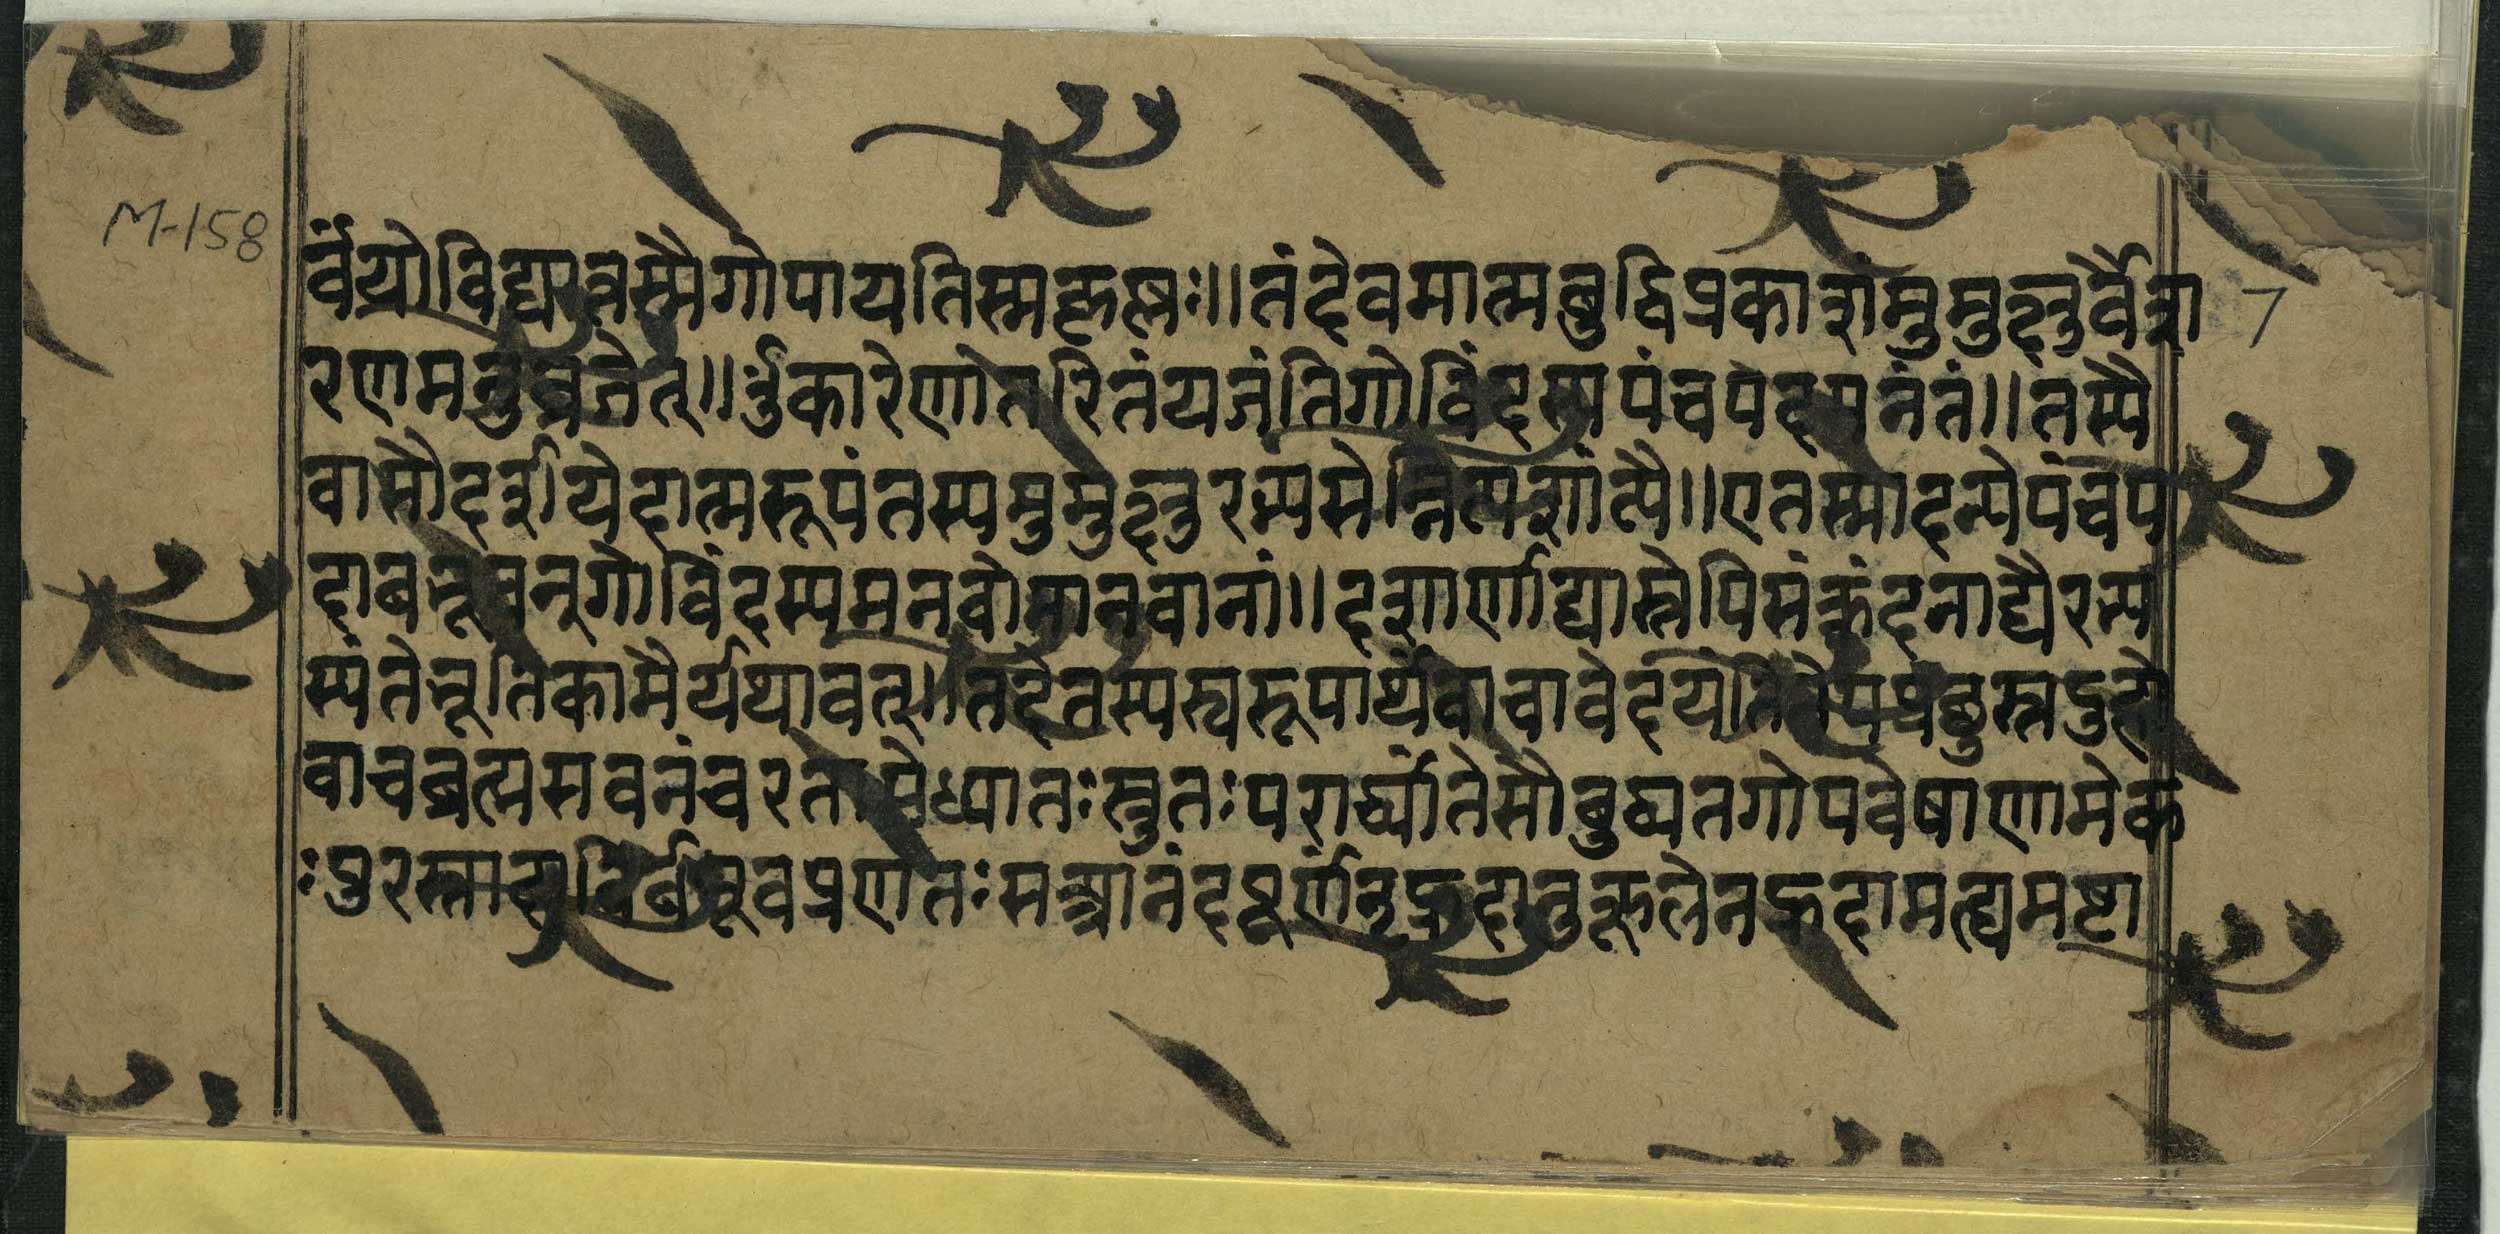 M-158
र्वंयोविद्यास्तस्मैगोपायतिस्मकृष्णः॥तंदेवमात्मबुद्धिप्रकाशंमुमुक्षुर्वैशा 7
रणमनुव्रजेत्॥ॐकारेणांतरितंयजंतिगोविंदस्यपंचपदमनंतं॥तस्यै
वासौदर्शयेदात्मरूपंतस्यमुमुक्षुरभ्यसेन्नित्यशांत्यै॥एतस्मादन्येपंचप
दाबभूवन्गोविंदस्यमनवोमानवानां॥दशार्णाद्यास्तेपिसंक्रंदनाद्यैरभ्य
स्यंतेभूतिकामैर्यथावत्॥तदेतस्यस्वरूपार्थंवाचावेदयेति
वाचब्रह्मसवनंचरतोमेध्यातःस्तुतःपरार्द्धांतेसौबुध्यतगोपवेषाणामेक
ःपुरस्तादाविर्बभूवप्रणतःमया हृदामह्यमष्टा